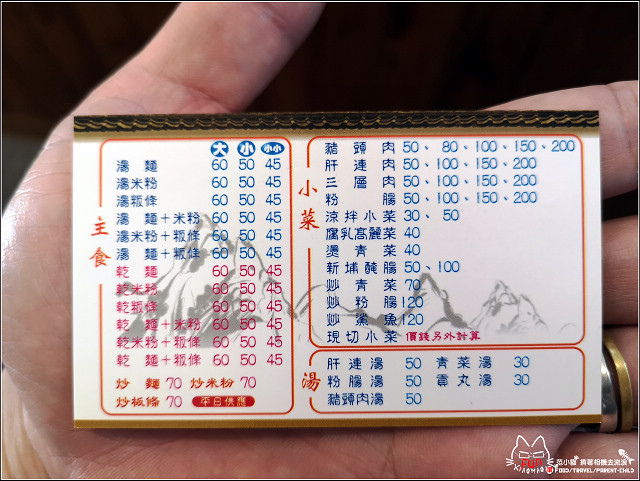 主食
大 小 小小
湯麵 60 50 45
湯米粉 60 50 45
湯粄條 60 50 45
湯麵+米粉 60 50 45
湯米粉+粄條 60 50 45
湯麵+粄條 60 50 45
乾麵 60 50 45
乾米粉 60 50 45
乾粄條 60 50 45
乾麵+米粉 60 50 45
乾米粉+粄條 60 50 45
乾麵+粄條 60 50 45
炒麵 70 炒米粉 70
炒粄條 70 平日供應
小菜
豬頭肉 50、80、100、150、200
肝連肉 50、100、150、200
三層肉 50、100、150、200
粉腸 50、100、150、200
涼拌小菜 30、50
腐乳高麗菜 40
燙青菜 40
新埔醃腸 50、100
炒青菜 70
炒粉腸 120
炒鯊魚 120
現切小菜 價錢另外計算
湯
肝連湯 50 青菜湯 30
粉腸湯 50 貢丸湯 30
豬頭肉湯 50
菜小貓 揹著相機去流浪
FOOD/TRAVEL/PARENT-CHILD